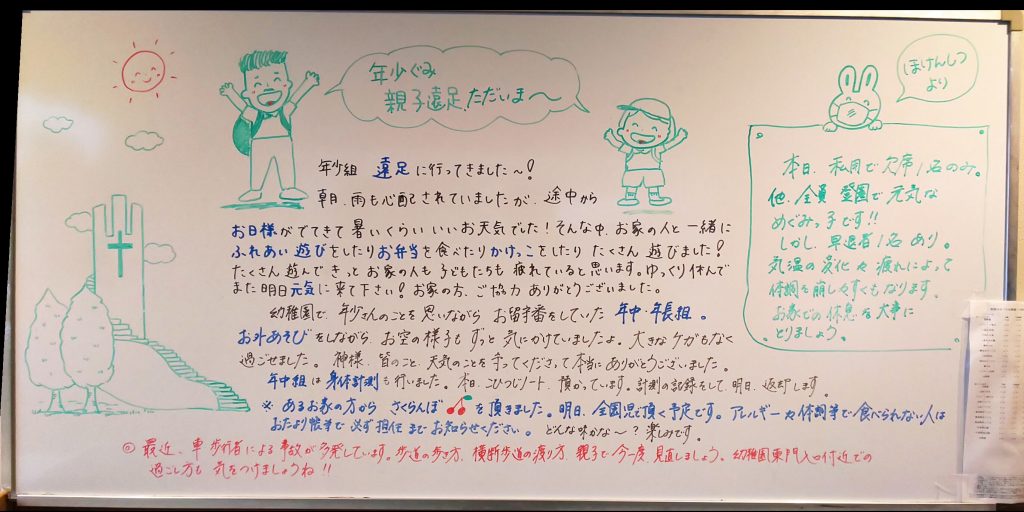 年少ぐみ
親子遠足、ただいま〜
ほけんしつ
より
年少組 遠足に行ってきました〜!
朝、雨も心配されていましたが、途中から
お日様がでてきて暑いくらい いいお天気でした!そんな中、お家の人と一緒に
ふれあい遊びをしたりお弁当を食べたりかけっこをしたり たくさん遊びました!
たくさん遊んできっとお家の人も子どもたちも疲れていると思います。ゆっくり休んで
また明日元気に来て下さい!お家の方、ご協力ありがとうございました。
幼稚園で、年少さんのことを思いながら お留守番をしていた 年中・年長組。
お外あそびをしながら、お空の様子もずっと気にかけていましたよ。大きなケガもなく
過ごせました。神様、皆のこと、天気のことを守ってくださって本当にありがとうございました。
年中組は身体計測も行いました。本日、こひつじノート、頂かっています。計測の記録をして明日、返却します
※ あるお家の方から さくらんぼ を頂きました。明日、全園児で頂く予定です。アレルギーや体調等で食べられない人は
おたより帳等で必ず担任までお知らせください。 どんな味かな〜?楽しみです。
◎ 最近、車 歩行者による事故が多発しています。歩道の歩き方、横断歩道の渡り方、親子で今一度見直しましょう。幼稚園東門入口付近での
過ごし方も気をつけましょうね!!
本日、私用で欠席1名のみ。
他、全員登園で元気な
めぐみっ子です!!
しかし、早退者1名あり。
気温の変化や疲れによって
体調を崩しやすくもなります。
お家での休息を大事に
とりましょう。